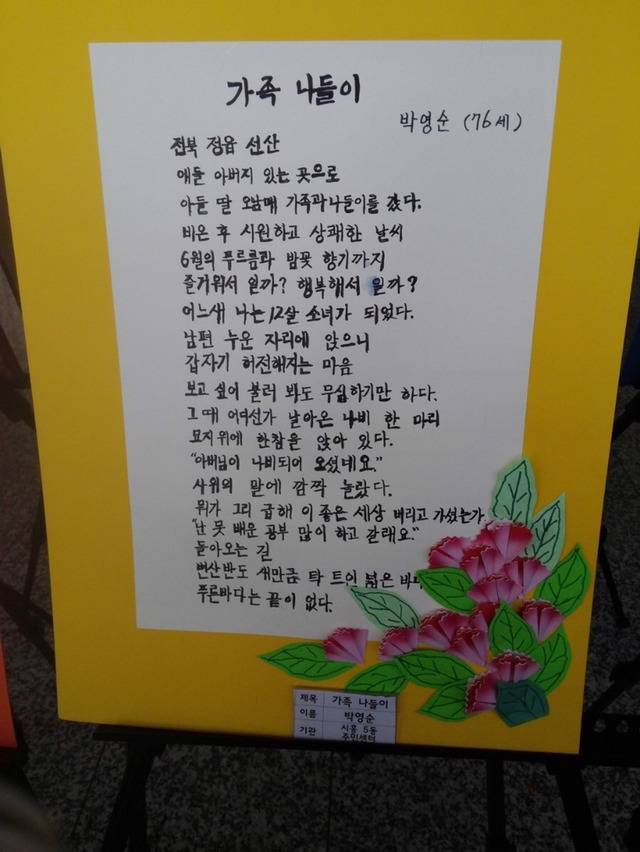 가족 나들이
박영순 (76세)
전북 정읍 선산
애들 아버지 있는 곳으로
아들 딸 오남매 가족과 나들이를 갔다.
비온 후 시원하고 상쾌한 날씨
6월의 푸르름과 밤꽃 향기까지
즐거워서 일까? 행복해서 일까?
어느새 나는 12살 소녀가 되었다.
남편 누운 자리에 앉으니
갑자기 허전해지는 마음
보고 싶어 불러 봐도 무심하기만 하다.
그때 어디선가 날아온 나비 한 마리
묘지위에 한참을 앉아 있다.
"아버님이 나비되어 오셨네요."
사위의 말에 깜짝 놀랐다.
뭐가 그리 급해 이 좋은 세상 버리고 가셨는가
"난 못 배운 공부 많이 하고 갈래요."
돌아오는 길
변산반도 새만금 탁 트인 넓은
푸른바다는 끝이 없다.
제목 가족 나들이
이름 박영순
기관 시흥 5동
주민센터